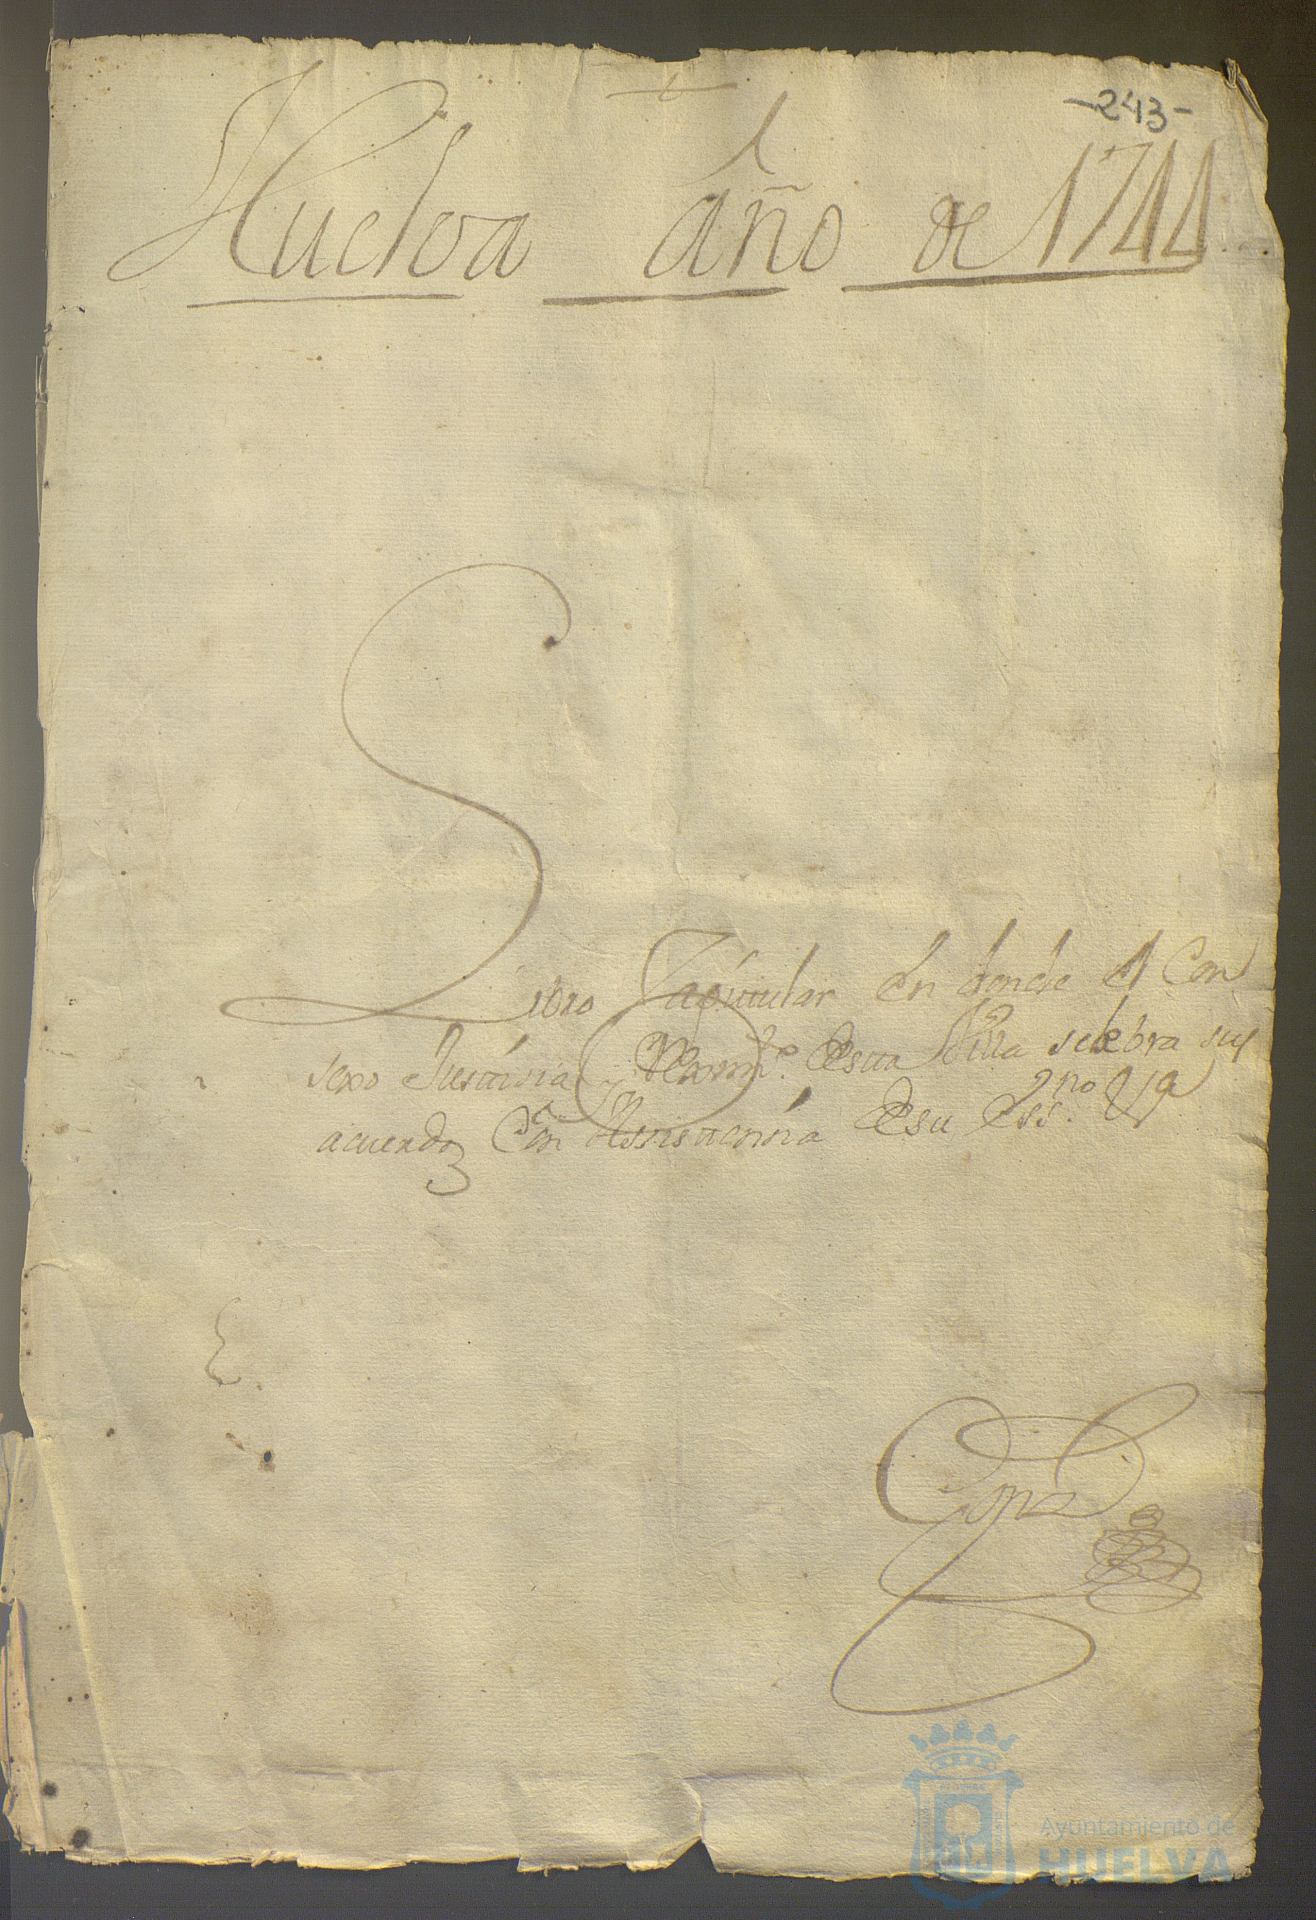 -243-
Huelva año de 1744
Libro Capitular en donde el Con
sexo Justisia y Reximto. desta Villa selebra sus
acuerdos Con Assistensia de su Essno
Ayuntamiento de
HUELVA